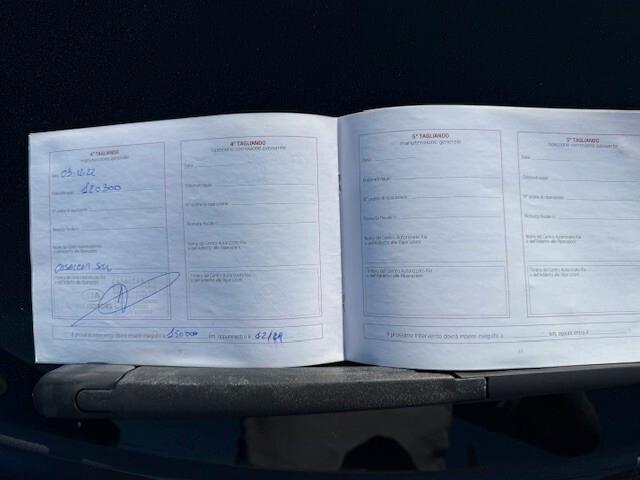 4° TAGLIANDO
manutenzione generale
Data 03.12.22
Chilometraggio 120300
N° ordine di riparazione
Ricevuta Fiscale n.
Nome del Centro Autorizzato Kia
o dell'Addetto alle Riparazioni
Timbro del Centro Autorizzato Kia
o dell'Addetto alle Riparazioni
4° TAGLIANDO
ispezione corrosione passante
Data
Chilometraggio
N° ordine di riparazione
Ricevuta Fiscale n.
Nome del Centro Autorizzato Kia
o dell'Addetto alle Riparazioni
Timbro del Centro Autorizzato Kia
o dell'Addetto alle Riparazioni
Il prossimo intervento dovrà essere eseguito a 150000 km, oppure entro il
5° TAGLIANDO
manutenzione generale
Data
Chilometraggio
N° ordine di riparazione
Ricevuta Fiscale n.
Nome del Centro Autorizzato Kia
o dell'Addetto alle Riparazioni
Timbro del Centro Autorizzato Kia
o dell'Addetto alle Riparazioni
5° TAGLIANDO
ispezione corrosione passante
Data
Chilometraggio
N° ordine di riparazione
Ricevuta Fiscale n.
Nome del Centro Autorizzato Kia
o dell'Addetto alle Riparazioni
Timbro del Centro Autorizzato Kia
o dell'Addetto alle Riparazioni
Il prossimo intervento dovrà essere eseguito a km, oppure entro il